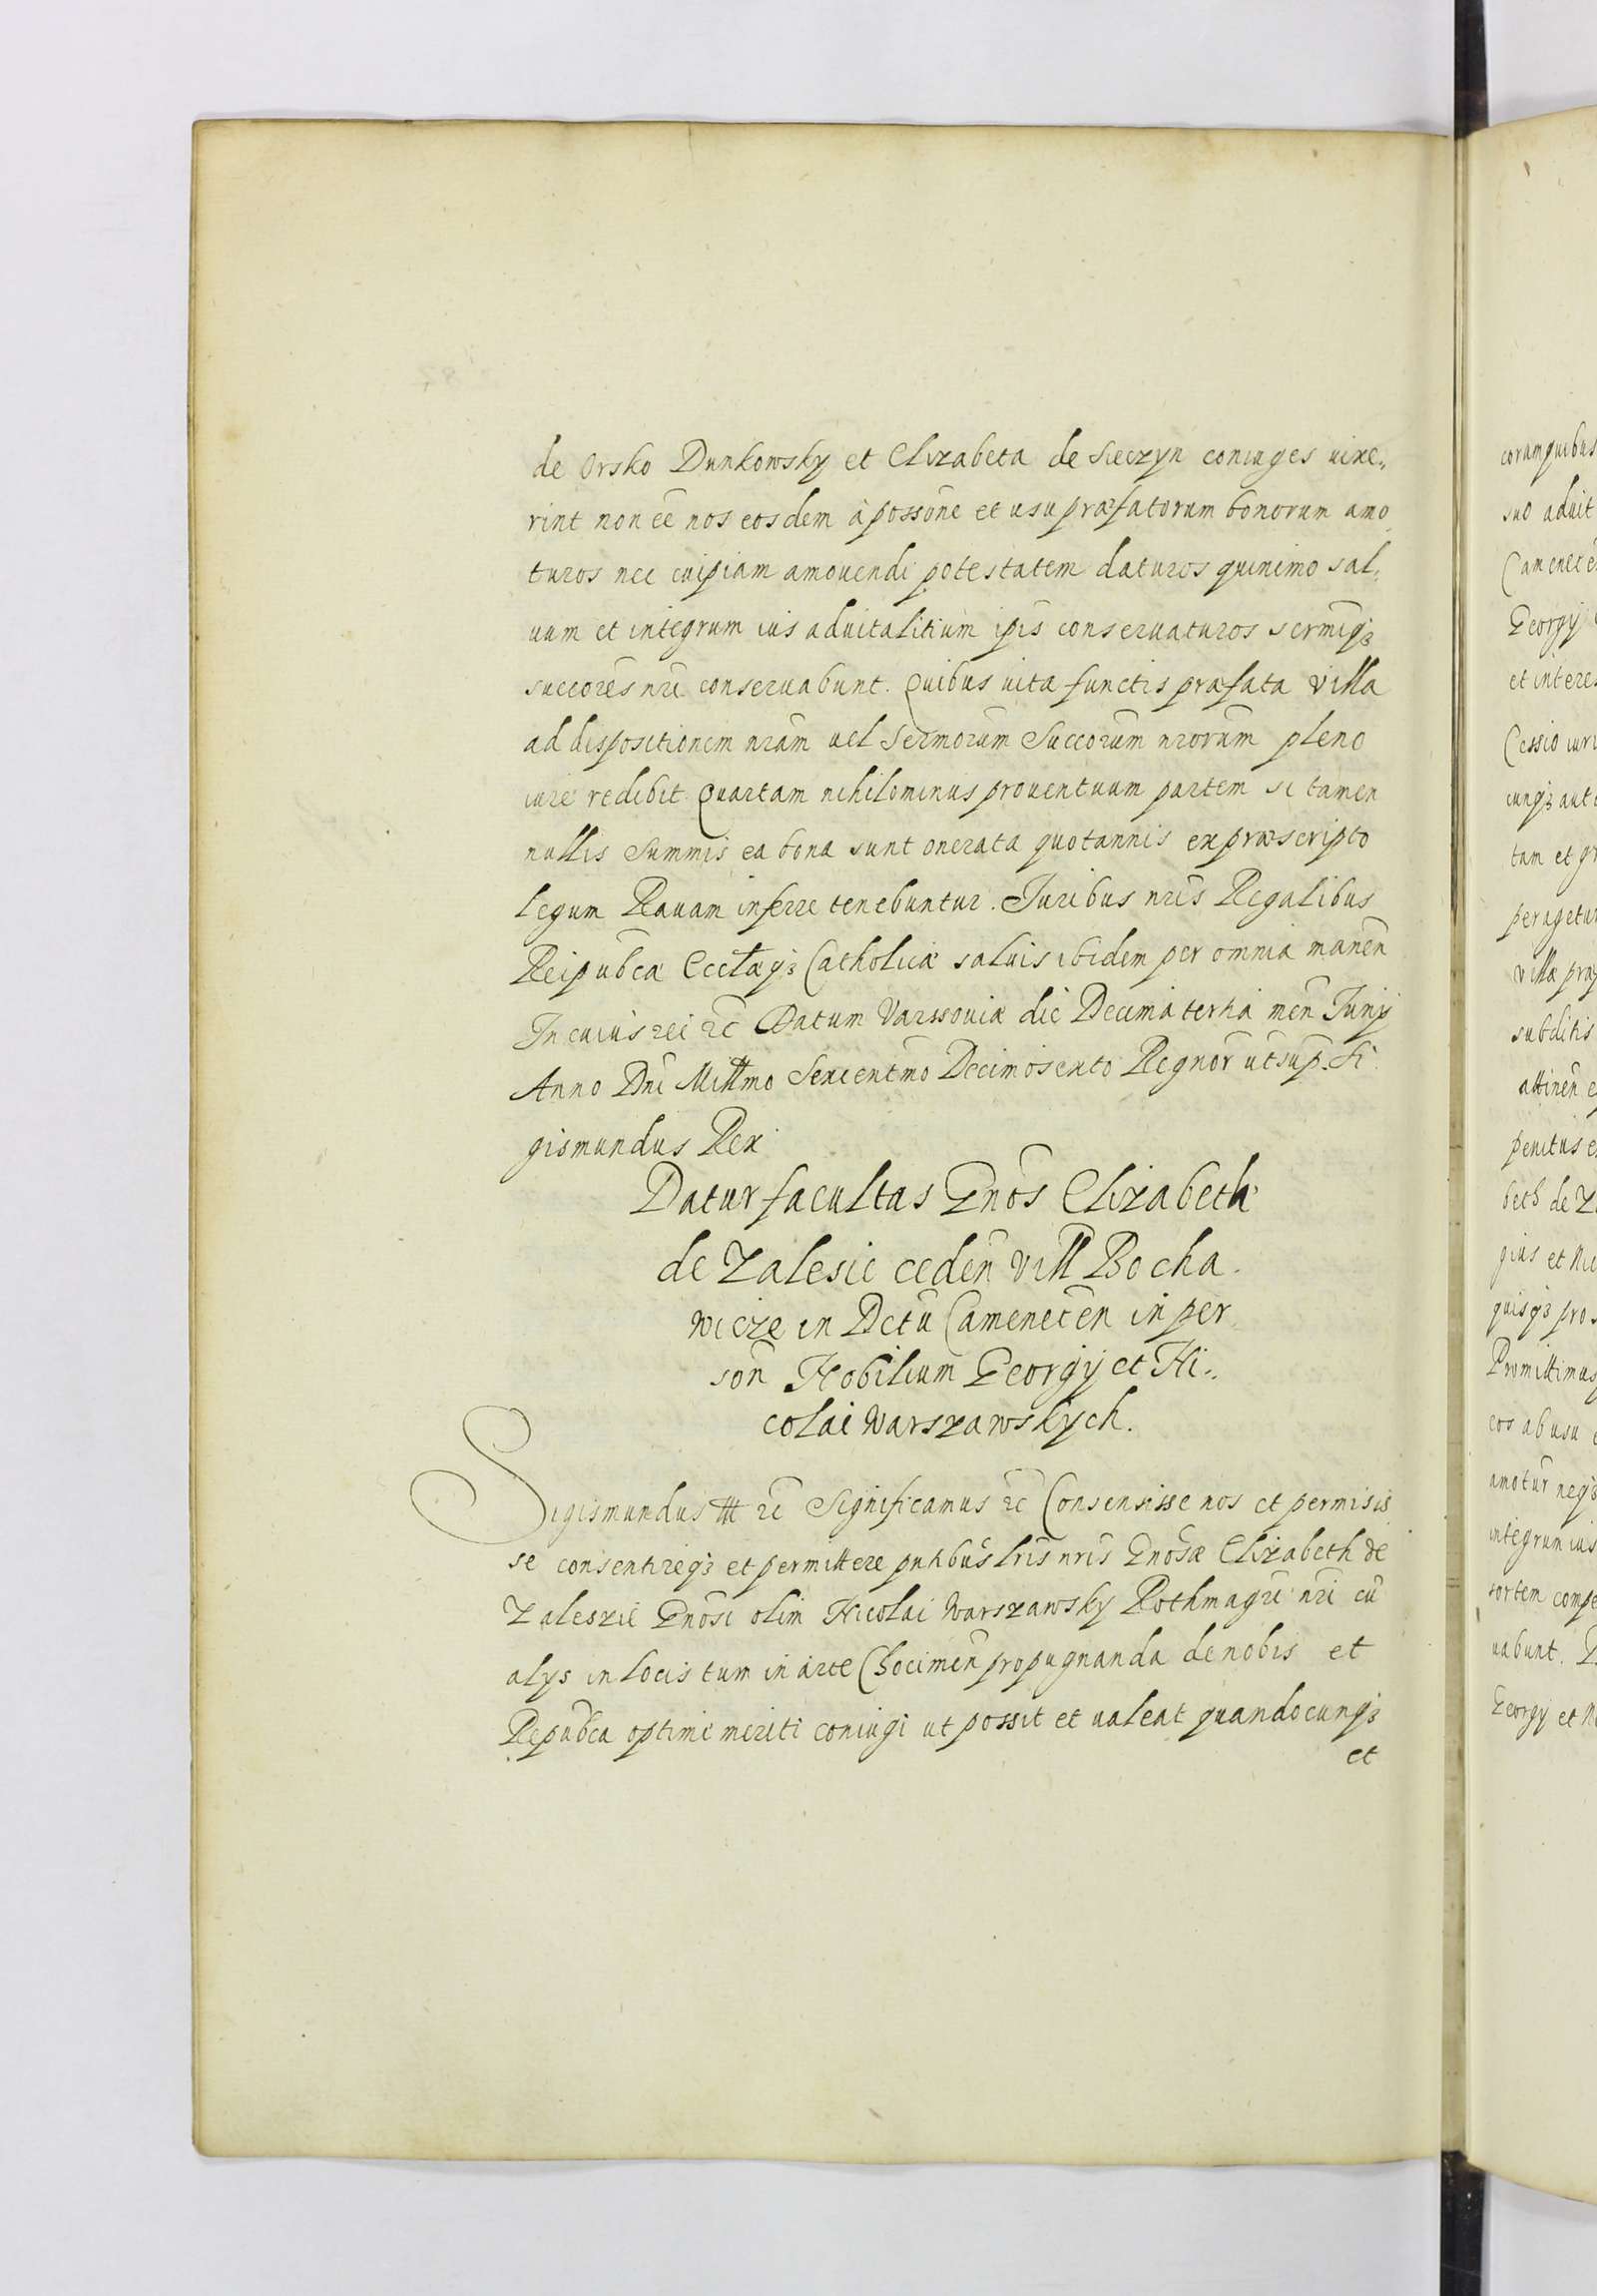 de Orsko Dunkowsky et Elizabeta de Sieczyn coniuges uixe,,
rint non ee͂ nos eosdem à possōne et usu præfatorum bonorum amo
turos nec cuipiam amouendi potestatem daturos quinimo sal,
uum et integrum ius aduitalitium ipīs conseruaturos sermīq3
succorēs nrī conseruabunt. Quibus uita functis præfata Villa
ad dispositionem nrām uel Sermorūm Succorūm nrorūm pleno
iure redibit Quartam nihilominus prouentuum partem si tamen
nullis Summis ea bona sunt onerata quotannis ex præscripto
legum Rauam inferre tenebuntur. Juribus nrīs Regalibus
Reipubcæ Eccłæq3 Catholicæ saluis ibidem per omnia manēn
In cuius rei rc̄ Datum Varssouiæ die Decima tertia mēn Junij
Anno Dnī Millmo Sexcentmō Decimosexto Regnor̄ ut sup. Si
gismundus Rex
Datur facultas Gnōs Elizabeth
de Zalesie cedēn Vill Bocha
wicze in Dctū Camenecēn in per
sōn Nobilium Georgij et Ni,,
colai Warszawskych.
Sigismundus III rc̄ Significamus rc̄ Consensisse nos et permisis
se consentireq3 et permittere pntibūs lrīs nrīs Gnōsæ Elizabeth de
Zaleszie Gnōsi olim Nicolai Warszawsky Rothmagrī nrī cū
alys in locis tum in arce Chocimēn propugnanda de nobis et
Repubca optime meriti coniugi ut possit et ualeat quandocunq3
et
corumquibus
suo aduit
Georgij
et interes
Cessio iuri
cunq3 aut
tam et gr
peragetur
villæ præ
subditis
attinēn e
penitus e
beth de Z
gius et Nic
quisq3 pro
Promittimus
eos ab usu
amotur neq3
integrum ius
sortem compe
uabunt.
Georgij et N